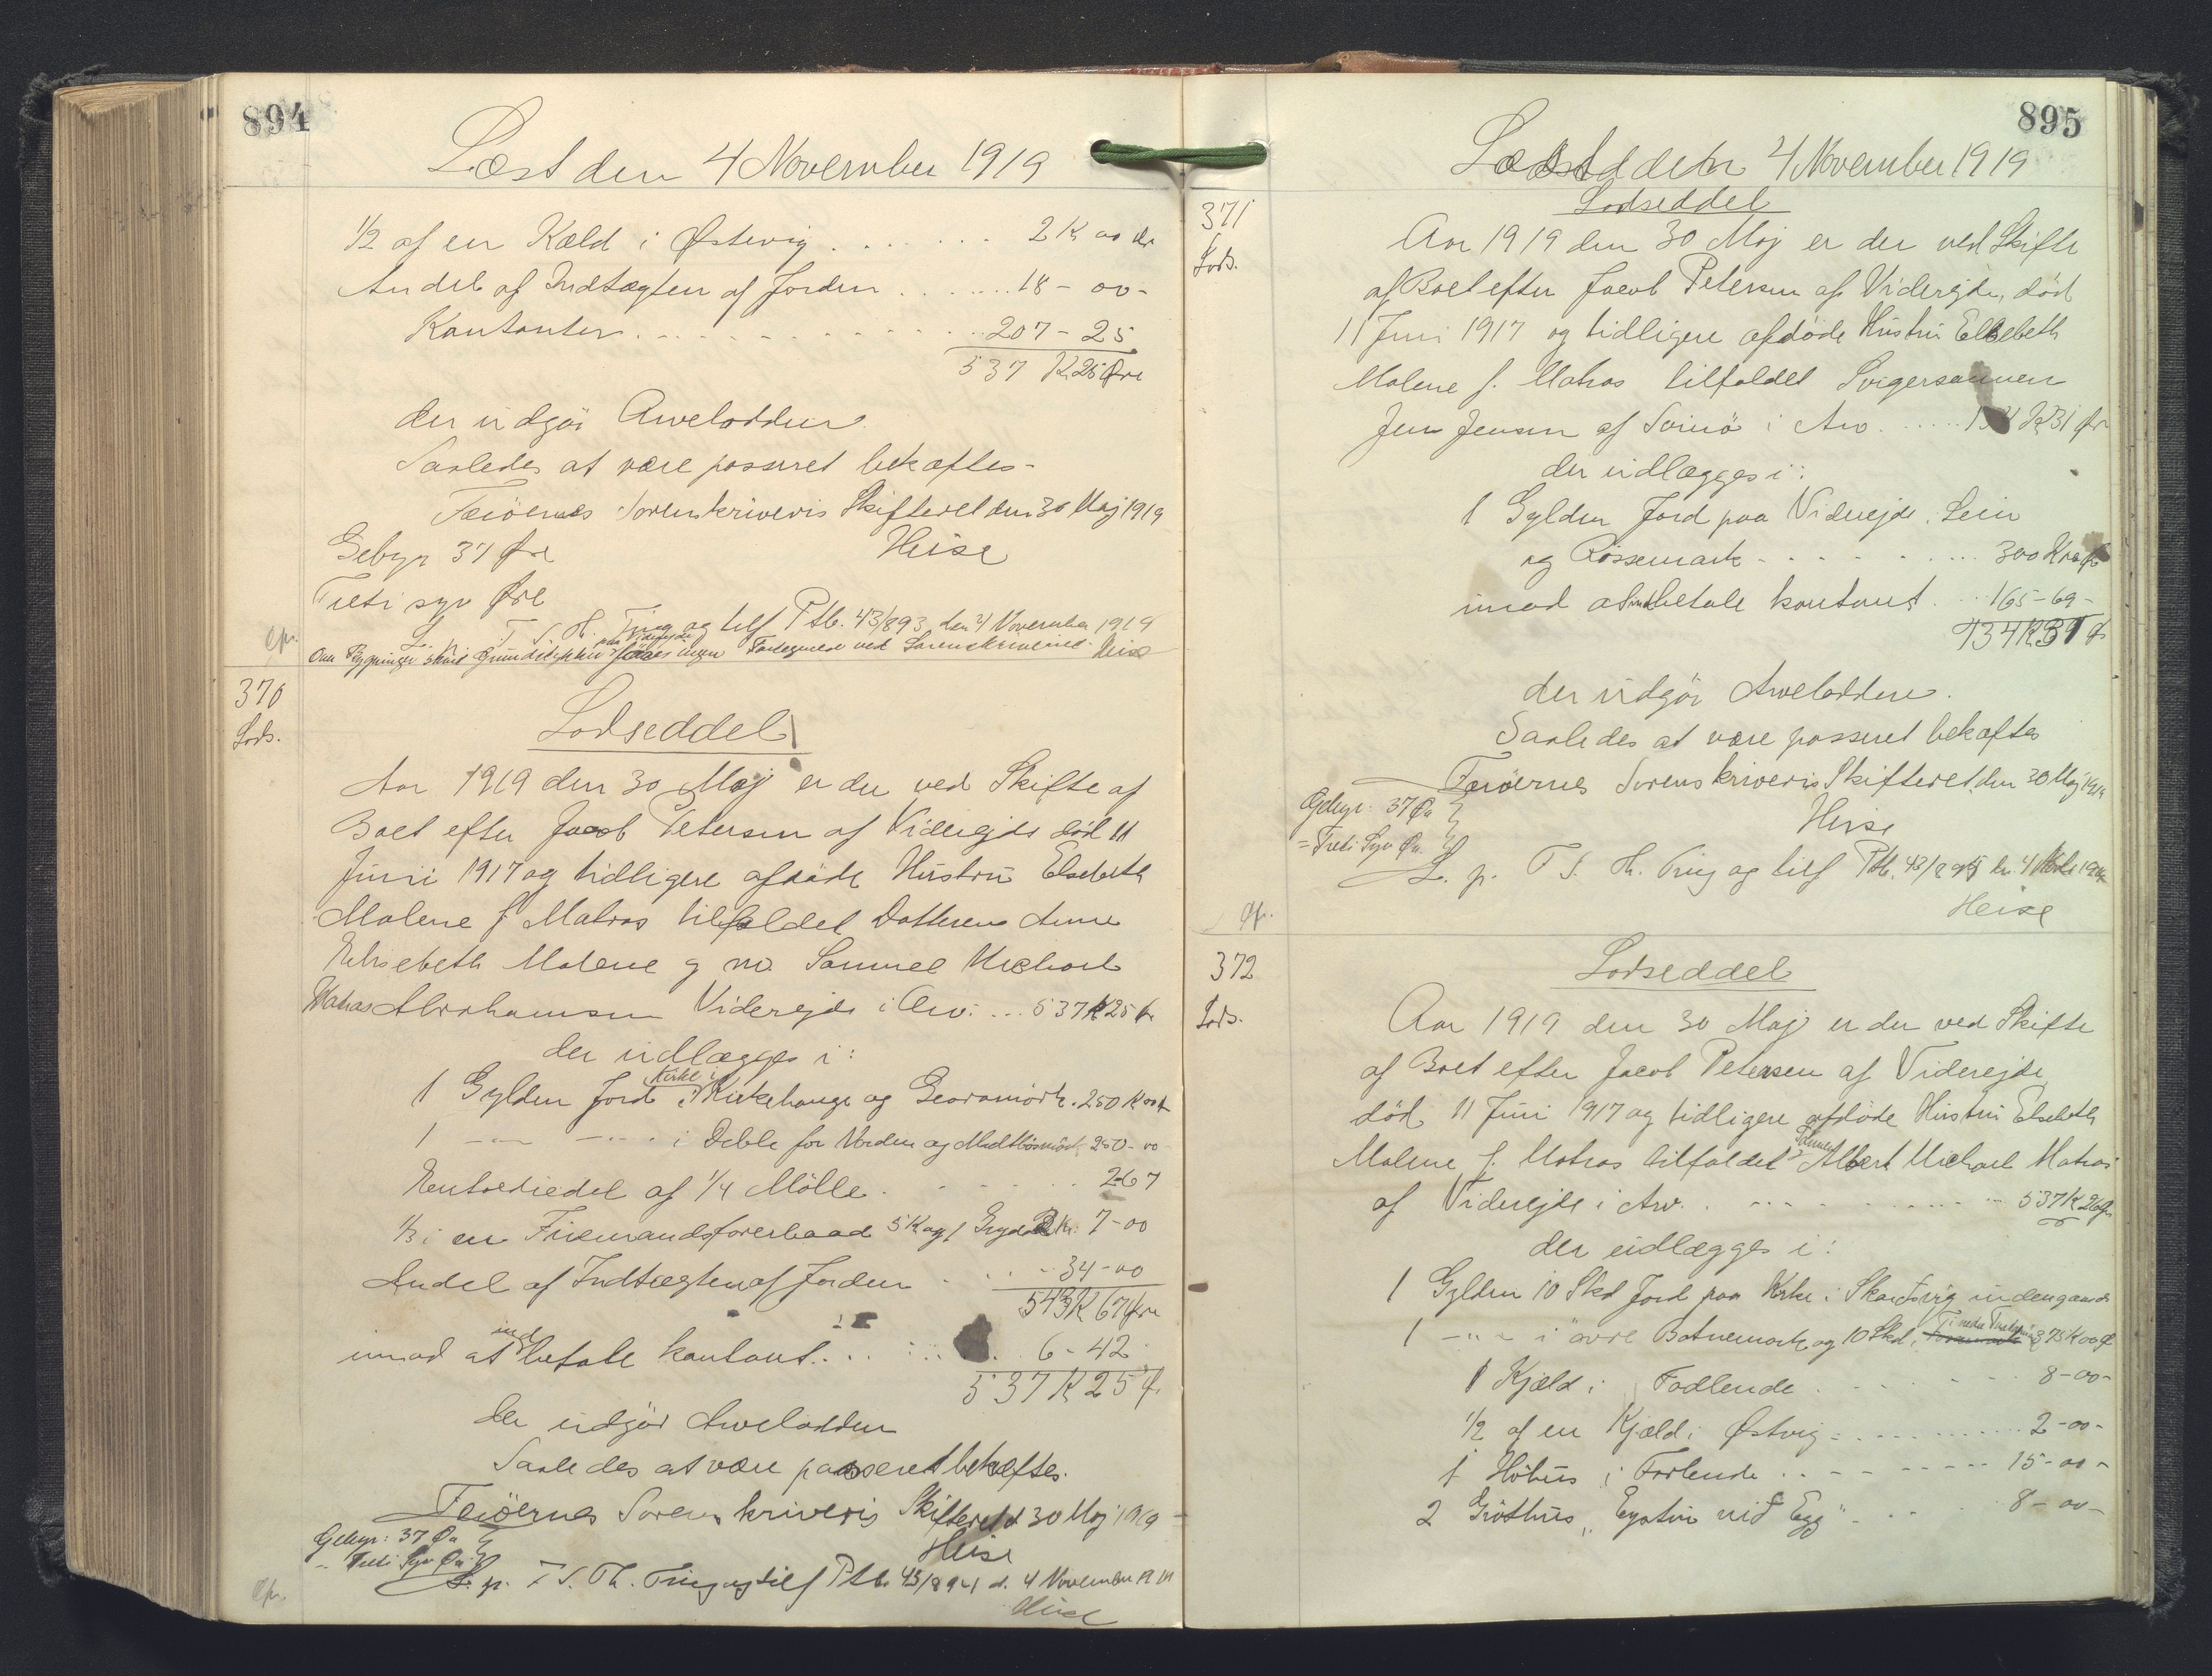 894
Læst den 4 November 1919
1/2 af en Kæld i Østvig . . . . . . . 2 K 00 Ør
Andel af Indtægten af Jorden . . . . . . 18 - 00 -
Kontanter . . . . . . . . . 207 - 25
537 K 25 Øre
der udgør Arvelodden.
Saaledes at være passeret bekræftes -
Færøernes Sorenskriveris Skifteret den 30 Maj 1919
Gebyr 37 Øre Heise
Treti syv Øre
L. T. S. Th. Ting og tilf Ptb. 43/893 den 4 November 1919
Om Bygninger paa Viderejde ved Sorenskriveriet. Heise
cfr.
370
Lods.
Lodseddel
Aar 1919 den 30 Maj er der ved Skifte af
Boet efter Jacob Petersen af Viderejde død 11
Juni 1917 og tidligere afdøde Hustru Elsebeth
Malene f. Matras tilfaldet Datteren Anne
Elsebeth Malene g. m. Samuel Michael
Matras Abrahamsen Viderejde i Arv: ... 537 K 25 Ør
der udlægges i:
1 Gylden Jord Kirke i Kirkehauge og . 250 K 00 Ør
1 -"- -"- i Deble for Norden og 250 - 00
af 1/4 Mølle . . . . . . 2 67
1/3 i en Firemandsfarerbaad 5 K og 1 Gryde 2 Kr. 7 - 00
Andel af Indtægten af Jorden . . . . 34 - 00
543 K 67 Øre
imod at ind betale kontant . . . . . 6 - 42
537 K 25 Ø.
der udgør Arvelodden
Saaledes at være passeret bekræftes.
Færøernes Sorenskriveris Skifteret d 30 Maj 1919
Gebyr: 37 Øre Heise
= Treti Syv Øre
L. p. T. S. Th. Ting og tilf Ptb. 43/894 d. 4 November 1919
Heise
cfr.
895
Læst den 4 November 1919
371
Lods.
Lodseddel
Aar 1919 den 30 Maj er der ved Skifte
af Boet efter Jacob Petersen af Viderejde, død
11 Juni 1917 og tidligere afdøde Hustru Elsebeth
Malene f. Matras tilfaldet Svigersønnen
Jens Jensen af Svinø i Arv . . . . . 134 K 31 Ør
der udlægges i:
1 Gylden Jord paa Viderejde, Leir
og Røssemark - - - - - . . . 300 Kr 00 Ør
imod at indbetale kontant . . . 165 - 69 -
134 K 31 Ø
der udgør Arvelodden.
Saaledes at være passeret bekræftes
Færøernes Sorenskriveris Skifteret, den 30 Maj 1919
Gebyr: 37 Øre Heise
= Treti Syv Øre
L. p. T. S. Th. Ting og tilf Ptb. 43/895 den 4 Novbr 1919
Heise
cfr.
372
Lods.
Lodseddel
Aar 1919 den 30 Maj er der ved Skifte
af Boet efter Jacob Petersen af Viderejde,
død 11 Juni 1917 og tidligere afdøde Hustru Elsebeth
Malene f. Matras tilfaldet Sønnen Albert Michael Matras
af Viderejde i Arv . . . . . . . . 537 K 26 Ør
der udlægges i:
1 Gylden 10 Skd Jord paa Kirke i Skardsvig indengaards
1 -"- i øvre Botnemark og 10 Skd. i nedre 375 K 00 Ø
1 Kjæld i Fodlende . . . . . . . 8 - 00 -
1/2 af en Kjæld i Østvig - . . . . . . . . 2 - 00 -
1 Høhus i Forlende . . - - - - - - 15 - 00 -
2 Grothus "Eystur við Egg" - . . . 8 - 00 -